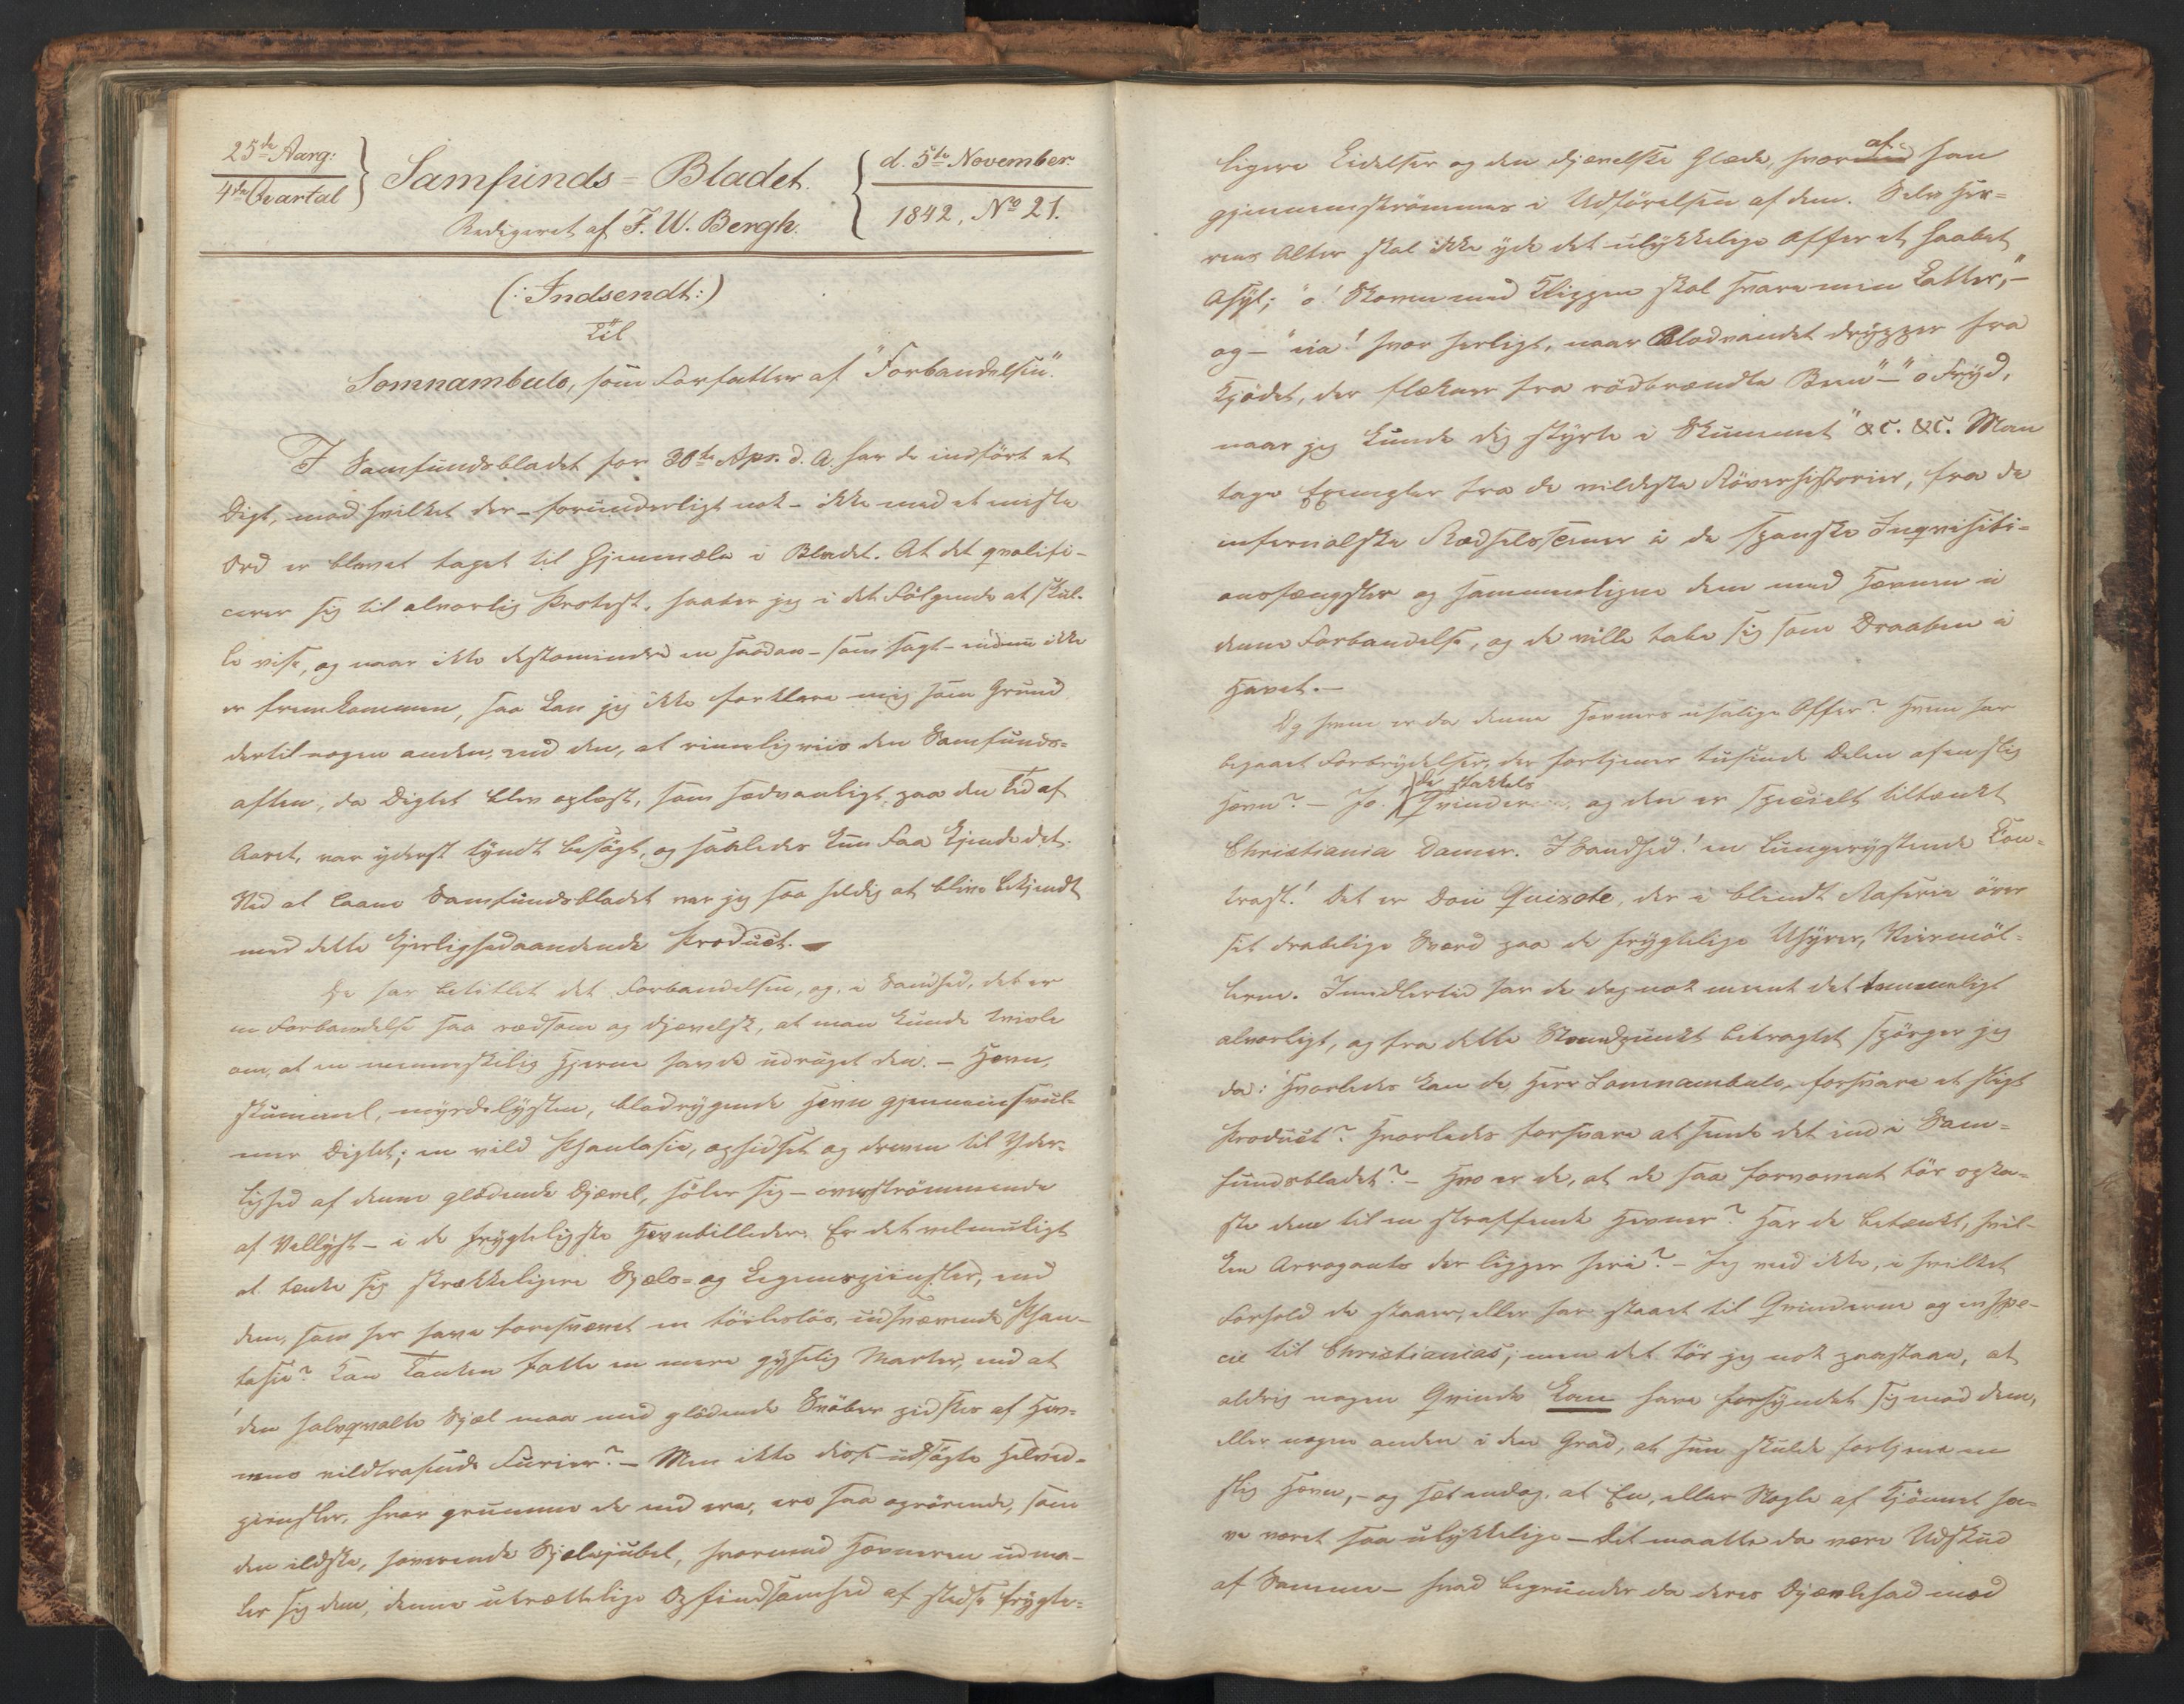 25de Aarg:
4de Qvartal
Samfunds-Bladet.
Redigeret af F. W. Bergh.
d. 5te November
1842, No 21.
(: Indsendt :)
til
Somnambulo, som Forfatter af "Forbandelsen".
I Samfundsbladet for 30te Apr. d. A. har De indført et
Digt, mod hvilket der - forunderligt nok - ikke med et eneste
Ord er blevet taget til Gjenmæle i Bladet. At det qvalifi-
cerer sig til alvorlig Protest, haaber jeg i det Følgende at skul-
le vise, og naar ikke destomindre en saadan - som sagt - endnu ikke
er fremkommen, saa kan jeg ikke forklare mig som Grund
dertil nogen anden, end den, at rimeligviis den Samfunds-
aften, da Digtet blev oplæst, som sædvanligt paa den Tid af
Aaret, var yderst tyndt besøgt, og saaledes kun Faa kjende det.
Ved at laane Samfundsbladet var jeg saa heldig at blive bekjendt
med dette kjerlighedaandende Product. -
De har betitlet det Forbandelsen, og, i Sandhed, det er
en Forbandelse saa rædsom og djævelsk, at man kunde tvivle
om, at en menneskelig Hjerne havde udruget den. - Hevn,
skummel, myrdelysten, blodrygende Hevn gjennemsvul-
mer Digtet; en vild Phantasie, ophidset og dreven til Yder-
lighed af denne glødende Djævel, føler sig - overstrømmende
af Vellyst - i de frygteligste Hevnbilleder. Er det vel muligt
at tænke sig skrækkeligere Sjæls- og Legemspiinsler, end
dem, som her have foresvævet en tøilesløs, udsvævende Phan-
tasie? Kan Tanken fatte en mere gyselig Marter, end at
den halvqvalte Sjæl maa med glödende Svöber pidskes af Hev-
nens vildtrasende Furier? - Men ikke disse udsøgte Helved-
piinsler, hvor grumme de end ere, ere saa oprørende, som
den ildske, hoverende Sjælejubel, hvormed Hævneren udma-
ler sig dem, denne utrættelige Opfindsomhed af stedse frygte-
ligere Lidelser og den djævelske Glæde, hvoraf han
gjennemströmmes i Udførelsen af dem. Selv Her-
rens Alter skal ikke yde det ulykkelige Offer et haabet
Asyl; "o! Skoven med Klippen skal svare min Latter," -
og - "eia! hvor herligt, naar Blodvandet drypper fra
Kjødet, der flækner fra rødbrændte Been" - "o Fryd,
naar jeg kunde dig styrte i Skummet" &c. &c. Man
tage Exempler fra de vildeste Røverhistorier, fra de
infernalske Rædselsscener i de spanske Inqvisiti-
onsfængsler og sammenligne dem med Hævnen i
denne Forbandelse, og de ville tabe sig som Draaben i
Havet. -
Og hvem er da denne Hevners usalige Offer? Hvem har
begaaet Forbrydelser, der fortjener tusinde Delen af en slig
Hævn? - Jo. de stakkels Qvinder, og den er specielt tiltænkt
Christiania Damer. I Sandhed! en lungerystende Con-
trast! Det er Don Quixote, der i blindt Raserie øver
sit drabelige Sværd paa de frygtelige Uhyrer, Veirmøl-
lerne. Imidlertid har De dog nok meent det temmeligt
alvorligt, og fra dette Standpunkt betragtet spørger jeg
da: Hvorledes kan De, Herr Somnambulo, forsvare et sligt
Product? Hvorledes forsvare at sende det ind i Sam-
fundsbladet? - Hvo er De, at De saa formoent tør opka-
ste dem til en straffende Hevner? Har De betænkt, hvil-
ken Arrogants der ligger heri? - Jeg veed ikke, i hvilket
Forhold De staaer, eller har staaet til Qvinderne og in spe-
cie til Christianias; men det tør jeg nok paastaae, at
aldrig nogen Qvinde kan have forsyndet sig mod Dem,
eller nogen anden i den Grad, at hun skulde fortjene en
slig Hævn, - og sæt endog, at En, eller Nogle af Kjønnet ha-
ve været saa ulykkelige - det maatte da være Udskud
af Samme - hvad begrunder da Deres Djævlehad mod